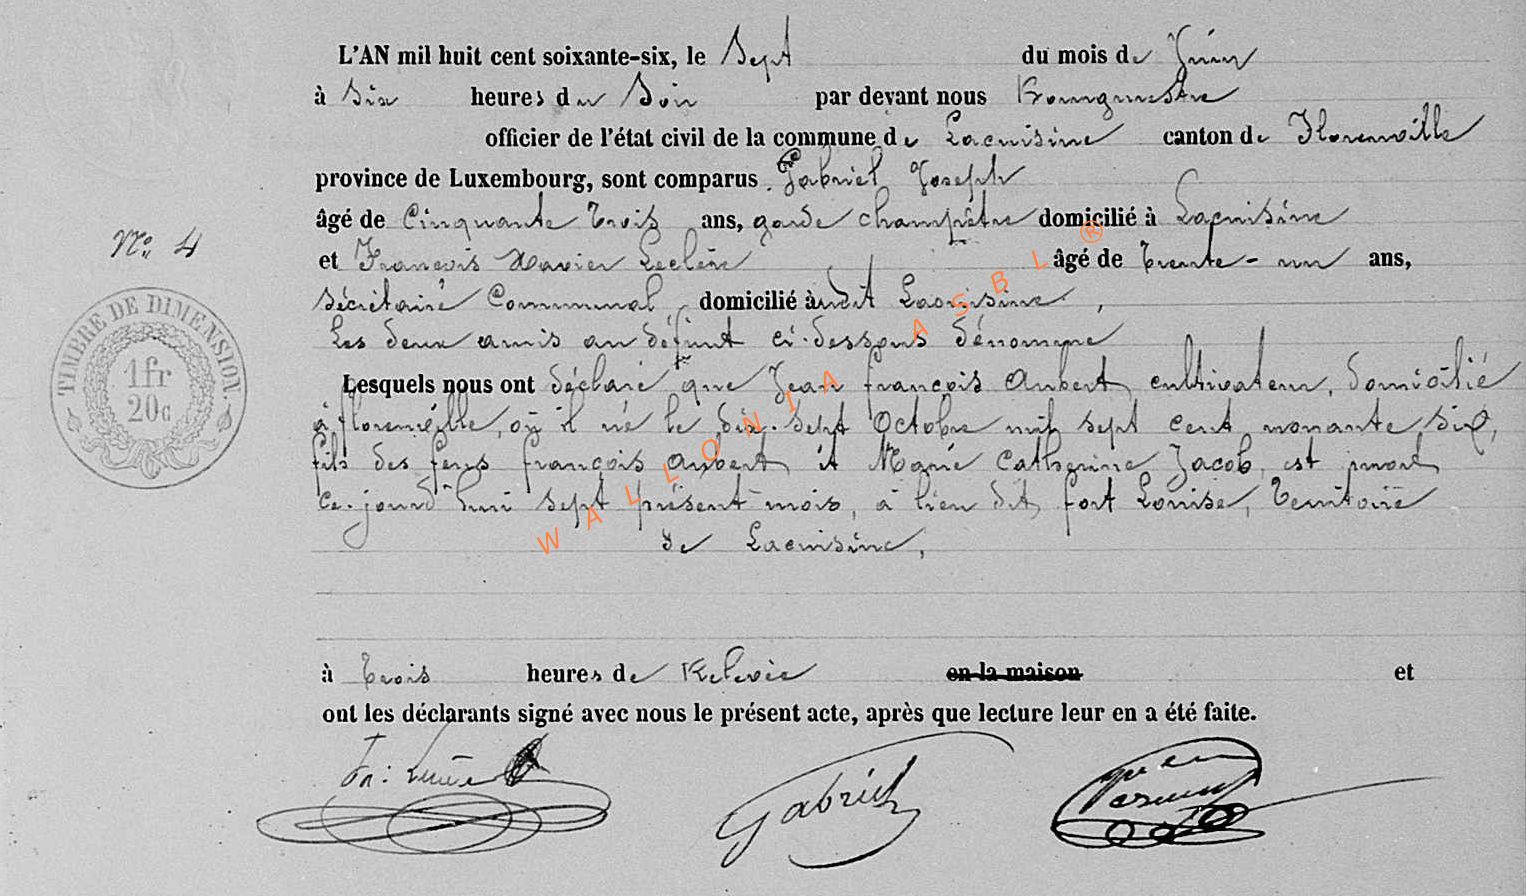 L'AN mil huit cent soixante-six, le Sept du mois de Juin
à Six heures du Soir par devant nous Bourgmestre
officier de l'état civil de la commune de Lacuisine canton de Florenville
province de Luxembourg, sont comparus Gabriel Joseph
âgé de Cinquante trois ans, garde champêtre domicilié à Lacuisine
N° 4
et François Xavier Leclère âgé de trente-un ans,
Sécrétaire Communal, domicilié àudit Lacuisine,
Les deux amis au défunt ci-dessous dénommé
TIMBRE DE DIMENSION.
1 fr
20c
Lesquels nous ont déclaré que Jean françois Aubert, cultivateur, domicilié
à florenville, où il né le dix-sept Octobre mil sept cent nonante six,
fils des feus françois Aubert et Marie Catherine Jacob, est mort
ce-jourd'hui sept présent mois, à lieu dit, fort Louise, territoire
de Lacuisine,
WALLONIA ASBL ®
à trois heures de Relevée en la maison et
ont les déclarants signé avec nous le présent acte, après que lecture leur en a été faite.
Gabriel